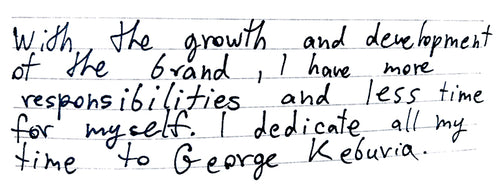 With the growth and development
of the brand, I have more
responsibilities and less time
for myself. I dedicate all my
time to George Keburia.